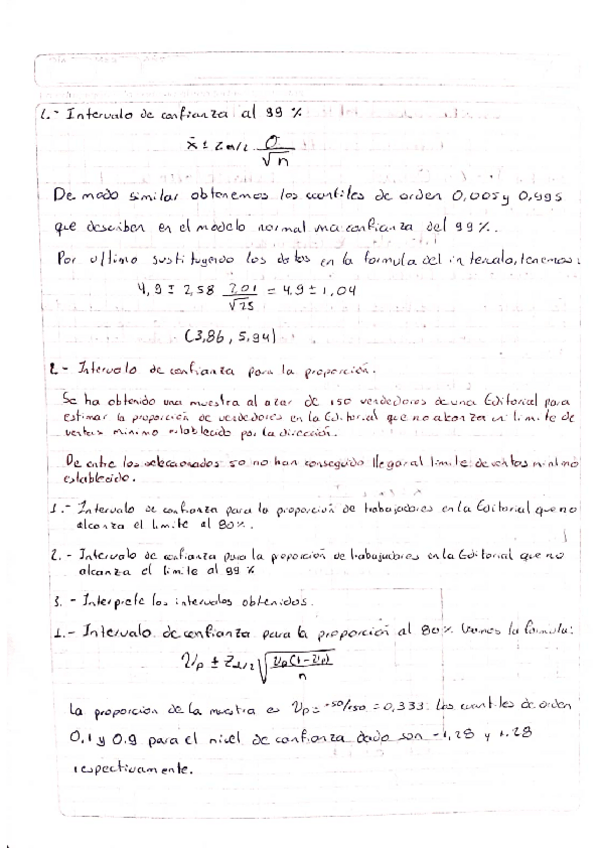 2.- Intervalo de confianza al 99 %
x̄ ± Zα/2 · σ/√n
De modo similar obtenemos los cuantiles de orden 0,005 y 0,995
que describen en el modelo normal una confianza del 99 %.
Por ultimo sustituyendo los datos en la formula del intervalo, tenemos:
4,9 ± 2,58 2,01/√25 = 4.9 ± 1,04
(3,86, 5,94)
2 - Intervalo de confianza para la proporción.
Se ha obtenido una muestra al azar de 150 vendedores de una Editorial para
estimar la proporción de vendedores en la Editorial que no alcanza un limite de
ventas minimo establecido por la dirección.
De entre los seleccionados 50 no han conseguido llegar al limite de ventas minimo
establecido.
1.- Intervalo de confianza para la proporción de trabajadores en la Editorial que no
alcanza el limite al 80%.
2. - Intervalo de confianza para la proporción de trabajadores en la Editorial que no
alcanza el limite al 99 %
3. - Interprete los intervalos obtenidos.
1.- Intervalo de confianza para la proporción al 80% Vamos la formula:
Vp ± Zα/2 √(Vp(1-Vp)/n)
La proporción de la muestra es Vp = 50/150 = 0,333. Los cuantiles de orden
0.1 y 0.9 para el nivel de confianza dado son -1,28 y 1.28
respectivamente.